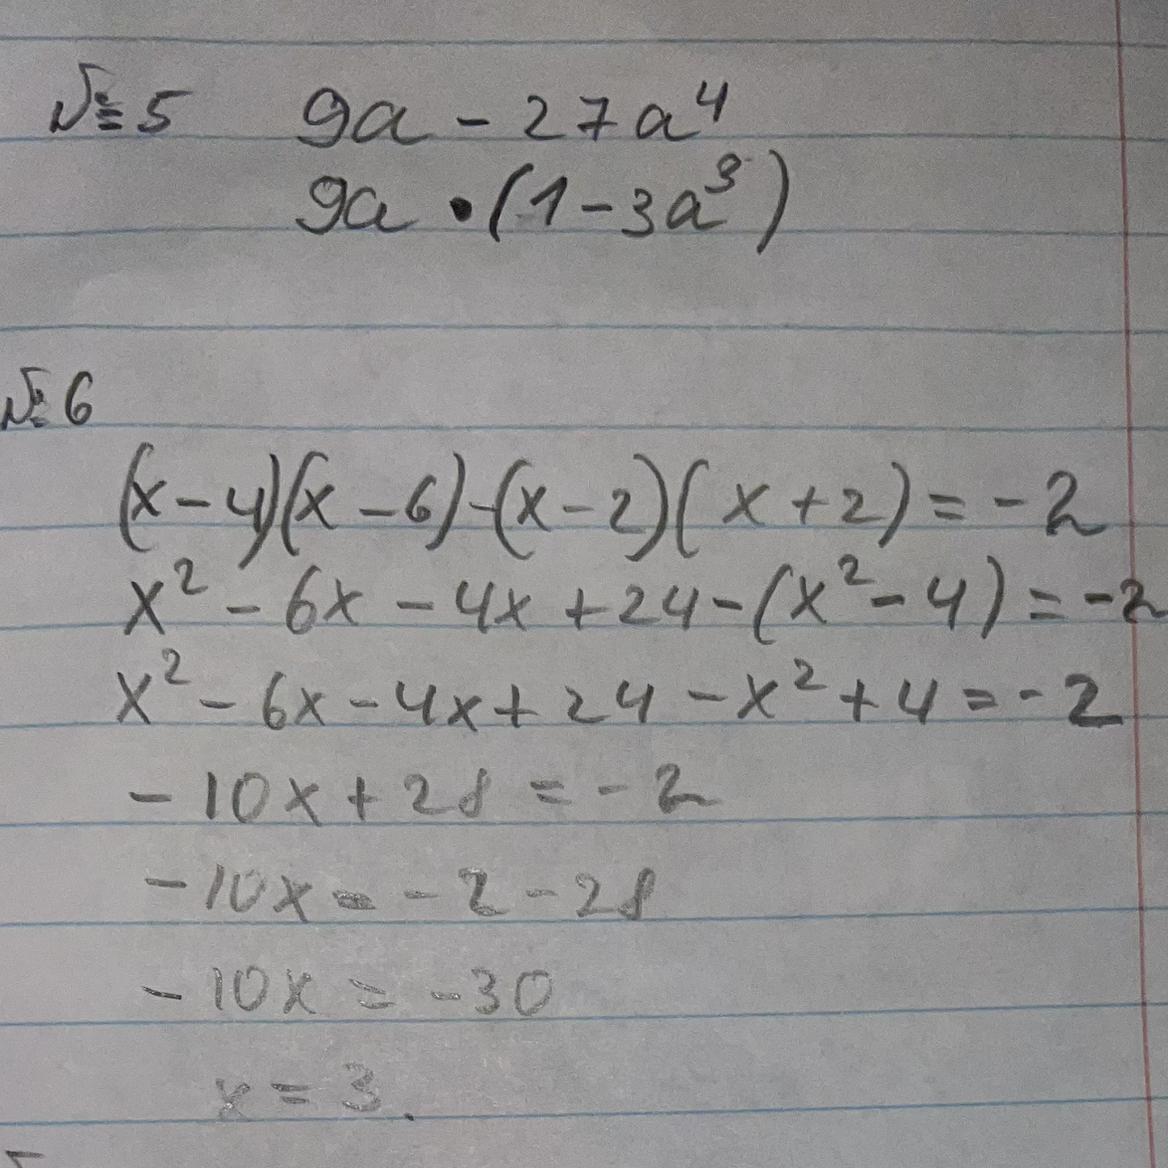 № 5 9a - 27a⁴
9a • (1 - 3a³)
№ 6
(x - 4)(x - 6) - (x - 2)(x + 2) = -2
x² - 6x - 4x + 24 - (x² - 4) = -2
x² - 6x - 4x + 24 - x² + 4 = -2
- 10x + 28 = - 2
- 10x = - 2 - 28
- 10x = -30
x = 3.